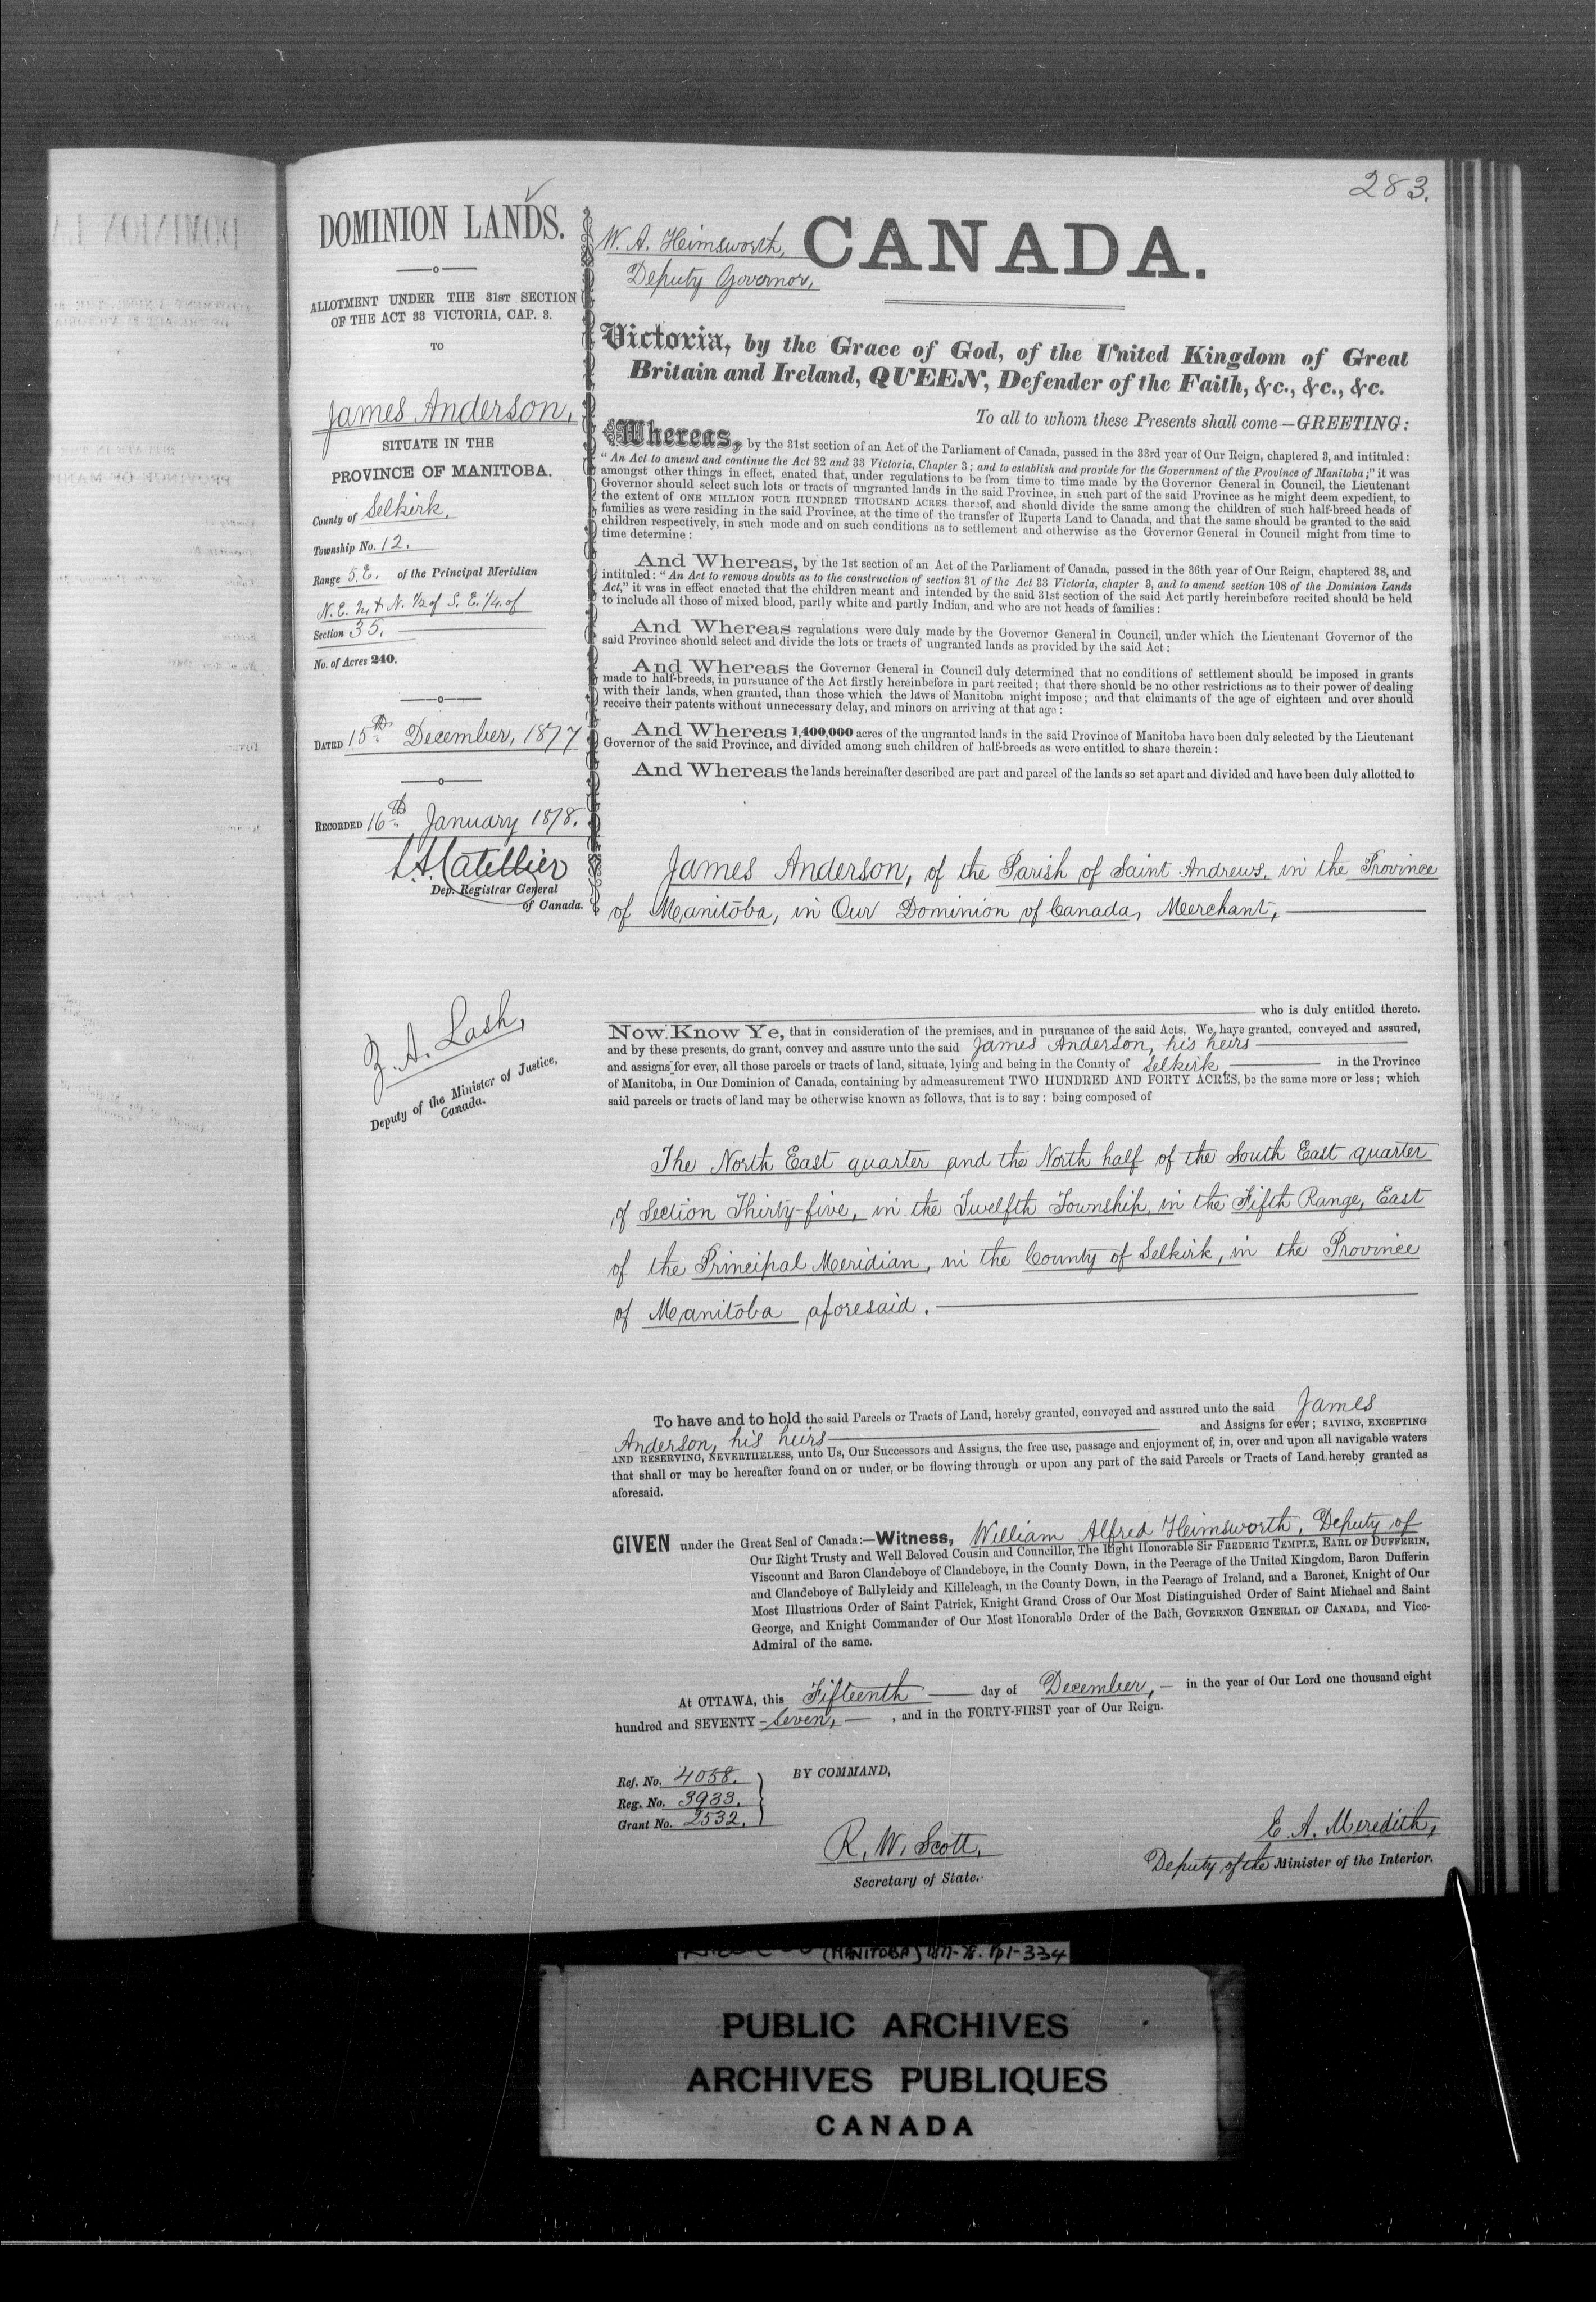 283.
DOMINION LANDS.
ALLOTMENT UNDER THE 31ST SECTION
OF THE ACT 33 VICTORIA, CAP. 3.
TO
James Anderson,
SITUATE IN THE
PROVINCE OF MANITOBA.
County of Selkirk,
Township No. 12.
Range 5. E. of the Principal Meridian
N. E. 1/4 & N. 1/2 of S. E. 1/4 of
Section 35.
No. of Acres 240.
DATED 15th December, 1877
RECORDED 16th January 1878.
Dep. Registrar General
of Canada.
Z. A. Lash,
Deputy of the Minister of Justice,
Canada.
W. A. Himsworth,
Deputy Governor,
CANADA.
Victoria, by the Grace of God, of the United Kingdom of Great
Britain and Ireland, QUEEN, Defender of the Faith, &c., &c., &c.
To all to whom these Presents shall come—GREETING:
Whereas, by the 31st section of an Act of the Parliament of Canada, passed in the 33rd year of Our Reign, chaptered 3, and intituled:
"An Act to amend and continue the Act 32 and 33 Victoria, Chapter 3; and to establish and provide for the Government of the Province of Manitoba;" it was
amongst other things in effect, enated that, under regulations to be from time to time made by the Governor General in Council, the Lieutenant
Governor should select such lots or tracts of ungranted lands in the said Province, in such part of the said Province as he might deem expedient, to
the extent of ONE MILLION FOUR HUNDRED THOUSAND ACRES thereof, and should divide the same among the children of such half-breed heads of
families as were residing in the said Province, at the time of the transfer of Ruperts Land to Canada, and that the same should be granted to the said
children respectively, in such mode and on such conditions as to settlement and otherwise as the Governor General in Council might from time to
time determine:
And Whereas, by the 1st section of an Act of the Parliament of Canada, passed in the 36th year of Our Reign, chaptered 38, and
intituled: "An Act to remove doubts as to the construction of section 31 of the Act 33 Victoria, chapter 3, and to amend section 108 of the Dominion Lands
Act," it was in effect enacted that the children meant and intended by the said 31st section of the said Act partly hereinbefore recited should be held
to include all those of mixed blood, partly white and partly Indian, and who are not heads of families:
And Whereas regulations were duly made by the Governor General in Council, under which the Lieutenant Governor of the
said Province should select and divide the lots or tracts of ungranted lands as provided by the said Act:
And Whereas the Governor General in Council duly determined that no conditions of settlement should be imposed in grants
made to half-breeds, in pursuance of the Act firstly hereinbefore in part recited; that there should be no other restrictions as to their power of dealing
with their lands, when granted, than those which the laws of Manitoba might impose; and that claimants of the age of eighteen and over should
receive their patents without unnecessary delay, and minors on arriving at that age:
And Whereas 1,400,000 acres of the ungranted lands in the said Province of Manitoba have been duly selected by the Lieutenant
Governor of the said Province, and divided among such children of half-breeds as were entitled to share therein:
And Whereas the lands hereinafter described are part and parcel of the lands so set apart and divided and have been duly allotted to
James Anderson, of the Parish of Saint Andrews, in the Province
of Manitoba, in Our Dominion of Canada, Merchant,
who is duly entitled thereto.
Now Know Ye, that in consideration of the premises, and in pursuance of the said Acts, We, have granted, conveyed and assured,
and by these presents, do grant, convey and assure unto the said James Anderson, his heirs
and assigns for ever, all those parcels or tracts of land, situate, lying and being in the County of Selkirk in the Province
of Manitoba, in Our Dominion of Canada, containing by admeasurement TWO HUNDRED AND FORTY ACRES, be the same more or less; which
said parcels or tracts of land may be otherwise known as follows, that is to say: being composed of
The North East quarter and the North half of the South East quarter
of Section Thirty-five, in the Twelfth Township, in the Fifth Range, East
of the Principal Meridian, in the County of Selkirk, in the Province
of Manitoba aforesaid.
To have and to hold the said Parcels or Tracts of Land, hereby granted, conveyed and assured unto the said James
Anderson, his heirs and Assigns for ever; SAVING, EXCEPTING
AND RESERVING, NEVERTHELESS, unto Us, Our Successors and Assigns, the free use, passage and enjoyment of, in, over and upon all navigable waters
that shall or may be hereafter found on or under, or be flowing through or upon any part of the said Parcels or Tracts of Land hereby granted as
aforesaid.
GIVEN under the Great Seal of Canada:—Witness, William Alfred Himsworth, Deputy of
Our Right Trusty and Well Beloved Cousin and Councillor, The Right Honorable Sir FREDERIC TEMPLE, EARL OF DUFFERIN,
Viscount and Baron Clandeboye of Clandeboye, in the County Down, in the Peerage of the United Kingdom, Baron Dufferin
and Clandeboye of Ballyleidy and Killeleagh, in the County Down, in the Peerage of Ireland, and a Baronet, Knight of Our
Most Illustrious Order of Saint Patrick, Knight Grand Cross of Our Most Distinguished Order of Saint Michael and Saint
George, and Knight Commander of Our Most Honorable Order of the Bath, GOVERNOR GENERAL OF CANADA, and Vice-
Admiral of the same.
At OTTAWA, this Fifteenth day of December, in the year of Our Lord one thousand eight
hundred and SEVENTY-Seven, , and in the FORTY-FIRST year of Our Reign.
Ref. No. 4058.
Reg. No. 3933.
Grant No. 2532.
BY COMMAND,
R. W. Scott,
Secretary of State.
E. A. Meredith,
Deputy of the Minister of the Interior.
(MANITOBA) 1877-78. Pp 1-334
PUBLIC ARCHIVES
ARCHIVES PUBLIQUES
CANADA